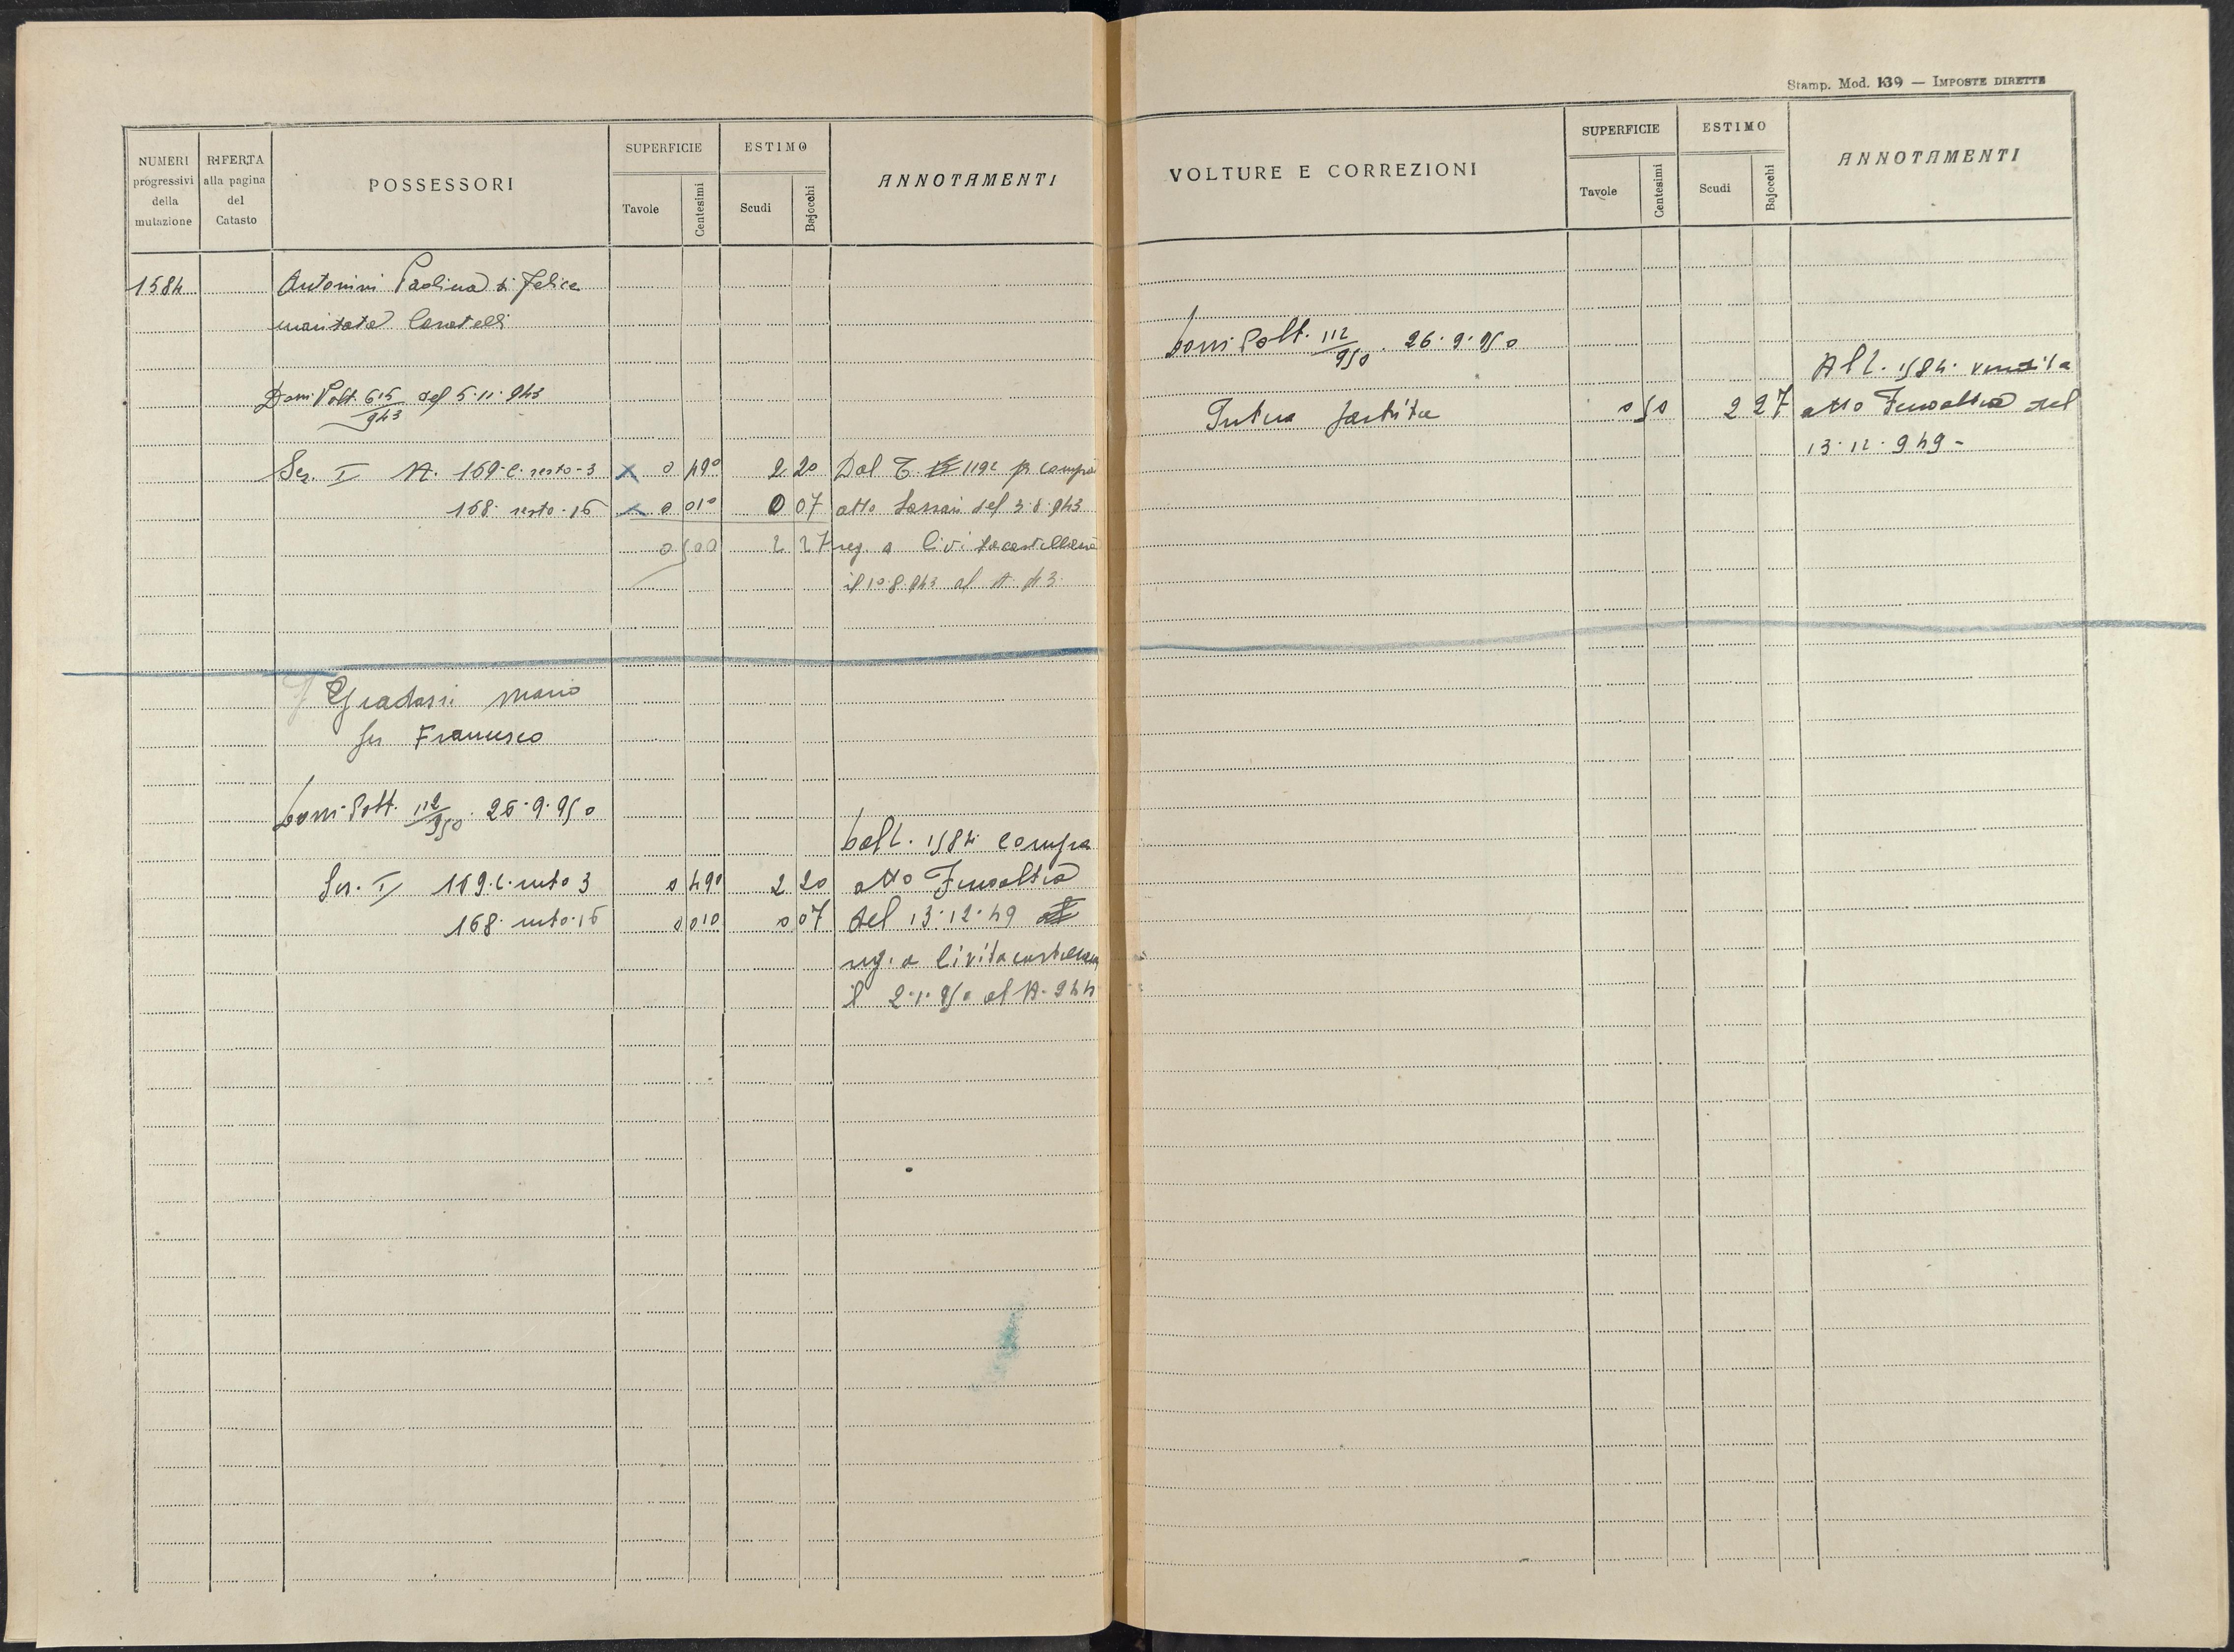 Stamp. Mod. 139 — IMPOSTE DIRETTE
NUMERI progressivi della mutazione
RIFERTA alla pagina del Catasto
POSSESSORI
SUPERFICIE
Tavole
Centesimi
ESTIMO
Scudi
Bajocchi
ANNOTAMENTI
1584 Antonini Paolina di Felice
maritata
Dom Polt 615/943 del 5.11.943
Sez. I N. 169.C. resto-3 x 0 490 2 20 Dal T. 1192 p compra
168. resto-15 x 0 010 0 07 atto del 3.8.943
0 500 2 27 reg. a Civitacastellana
il 10.8.943 al N. 43.
Gradassi Mario
fu Francesco
Polt. 112/950. 26.9.950
1584 compra
Sez. I 169.C. resto 3 0 490 2 20 atto
168. resto.15 0 010 0 07 del 13.12.49
reg. a Civitacastellana
il 2.1.950 al N. 944
VOLTURE E CORREZIONI
SUPERFICIE
Tavole
Centesimi
ESTIMO
Scudi
Bajocchi
ANNOTAMENTI
Polt. 112/950. 26.9.950
All. 1584. vendita
Intera partita 0 50 2 27 atto del
13.12.949-